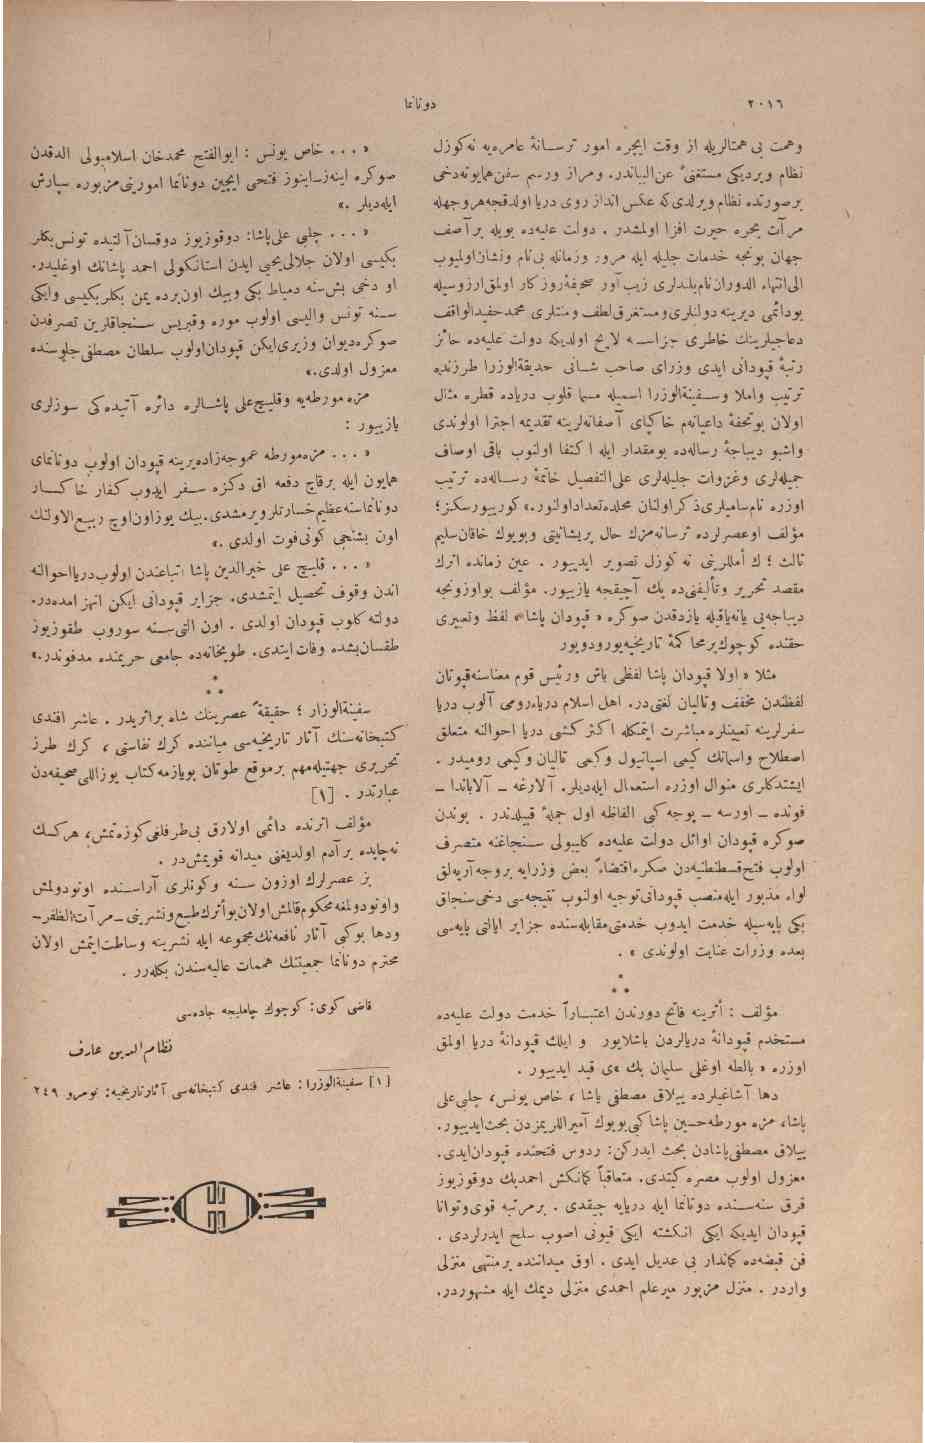 ٢٠١٦
دوناتما
وهمت بی همتالریله از وقت ایچره امور ترسانهٔ عامره‌یه نه کوزل
نظام ویردیکی مستغنیٔ عن البیاندر. ومراز ورسم سفن همایونه دخی
برصورتده نظام ویرلدی که عکس انداز روی دریا اولدقجه هر وجهله
مرآت بحره حیرت افزا اولمشدر . دولت علیه‌ده بویله برآصف
جهان بونجه خدمات جلیله ایله مرور وزمانله بی نام ونشان اولمیوب
الی انتهاء الدوران نام بلندلری زیب آور صحیفهٔ روزکار اولمق ارزوسیله
بوداعٔی دیرینه دولتلری ومستغرق لطف ومنتلری محمد حفیدالواقف
دعاجیلرینك خاطری لایح اولدیکه دولت علیه‌ده حائز
رتبهٔ قپودانی ایدی وزرای صاحب شانی حدیقةالوزرا طرزنده
ترتیب واملا وسفینةالوزرا اسمیله مسما قلوب دریاده قطره مثال
اولان بوتحفهٔ داعیانه‌م خاکپای آصفانه‌لرینه تقدیمه اجترا اولوندی
واشبو دیباجهٔ رساله‌ده بومقدار ایله اکتفا اولنوب باقی اوصاف
جمیله‌لری وغزوات جلیله‌لری علی‌التفصیل خاتمهٔ رساله‌ده ترتیب
اوزره نام سامیلری ذکر اولنان محلده تعداد اولنور.» کوریبورسکز؛
مؤلف اوعصرلرده ترسانه‌مزك حال پریشانیتی وبویوك خاقان سلیم
ثالث ؛ ك أمللرینی نه کوزل تصویر ایدیبور . عین زمانده اترك
مقصد تحریر وتألیفنی‌ده پك آچیقجه یازیبور. مؤلف بواوزونجه
دیباجه‌یی یانه‌یاقیله یازدقدن صوکره « قپودان پاشا» لفظ وتعبیری
حقنده کوچوك برمحاکمهٔ تاریخیه یورودویور
مثلا « اولا قپودان پاشا لفظی باش ورئیس قوم معناسنه قپوتان
لفظندن مخفف وتالیان لغتی‌در. اهل اسلام دریاء رومی آلوب دریا
سفرلرینه تعیینلره مباشرت ایتمکله اکثر کشی دریا احوالنه متعلق
اصطلاح واسمانك کیمی اسپانیول وکیمی تالیان وکیمی رومیدر .
ایشتدکلری منوال اوزره استعمال ایله‌دیلر. آلارغه ـ آلاباندا ـ
فونده ـ اورسه ـ پوجه کبی الفاظه اول جملهٔ قبیلدندر . بوندن
صوکره قپودان اوائل دولت علیه‌ده کلیبولی سنجاغنه متصرف
اولوب فتح قسطنطنیه‌دن صکره اقتضاءً بعض وزرایه بروجه آرپه‌لق
لواء مذبور ایله منصب قپودانی توجیه اولنوب نتیجه‌سی دخی سنجاق
بکی پایه‌سیله خدمت ایدوب خدمتی مقابله‌سنده جزایر ایالتی پایه‌سی
بعده وزرات عنایت اولوندی » .
*
* *
مؤلف : أثرینه فاتح دورندن اعتباراً خدمت دولت علیه‌ده
مستخدم قپودانهٔ دریالردن باشلایور و ایلك قپودانهٔ دریا اولمق
اوزره « بالطه اوغلی سلیمان بك »ی قید ایدیبور .
دها آشاغیلرده ییلاق مصطفی پاشا ، خاص یونس، چلبی علی
پاشا، مزه مورطه حسین پاشا کبی بویوك آمیراللریمزدن بحث ایدیبور.
ییلاق مصطفی پاشادن بحث ایدرکن: ردوس فتحنده قپودان ایدی.
معزول اولوب مصره کیتدی. متعاقباً کمانکش احمد بك دوقوزیوز
قرق سنه‌سنده دوناتما ایله دریایه چیقدی . برمرتبه قوی وتوانا
قپودان ایدیکه ایکی انکشته ایکی قیونی اصوب سلخ ایدرلردی .
فن قبضه‌ده کماندار بی عدیل ایدی . اوق میداننده برمنتهی منزلی
واردر . منزل مزبور میرعلم احمدی منزلی دیمك ایله مشهوردر.
« . . . خاص یونس : ابوالفتح محمدخان اسلامبولی الدقدن
صوکره اینه‌ز ـ اینوز فتحی ایچین دوناتما امورینی مزبوره سپارش
ایله‌دیلر .»
« . . . چلبی علی پاشا: دوقوزیوز دوقسان آلتیده تونس بکلر
بکیسی اولان جلالی یحیی ایدن استانکولی احمد پاشانك اوغلیدر.
او دخی بش سنه دمیاط بکی وبیك اون برده یمن بکلربکیسی وایکی
سنه تونس والیسی اولوب موره وقبریس سنجاقلرین تصرفدن
صوکره دیوان وزیری ایکن قپودان اولوب سلطان مصطفی جلوسنده
معزول اولدی.»
مزه مورطه‌یه وقلیچ علی پاشالره دائره آتیده‌کی سوزلری
یازیبور :
« . . . مزه‌مورطه عموجه‌زاده یرینه قپودان اولوب دوناتمای
همایون ایله برقاچ دفعه اق دکزه سفر ایدوب کفار خاکسار
دونانماسنه عظیم خسارتلر ویرمشدی. بیك یوز اون اوچ ربیع الاولنك
اون بشنجی کونی فوت اولدی .»
« . . . قلیچ علی خیرالدین پاشا اتباعندن اولوب دریا احوالنه
اندن وقوف تحصیل ایتمشدی. جزایر قپودانی ایکن انهز امده‌در.
دولته کلوب قپودان اولدی . اون التی سنه سوروب طقوزیوز
طقسان بشده وفات ایتدی. طوبخانه‌ده جامعی حریمنده مدفوندر.»
*
* *
سفینةالوزار ؛ حقیقةً عصرینك شاه براثریدر . عاشر افندی
کتبخانه‌سنك آثار تاریخیه‌سی میاننده كرك نفاستی ، كرك طرز
تحریری جهتیله مهم برموقع طوتان بویازمه کتاب یوز اللی صحیفه‌دن
عبارتدر . [١]
مؤلف اثرنده دائمی اولارق بی طرفلغی کوزه‌تمش، هرکسك
نه چاپده برآدم اولدیغنی میدانه قویمش‌در .
بز عصرلرك اوزون سنه وکونلری آراسنده اونودولمش
واونودولمغه محکوم قالمش اولان بو أثرك طبع ونشرینی ـ مرآت‌الظفر ـ
ودها بوکبی آثار نافعه‌نك مجموعه ایله نشرینه وساطت ایتمش اولان
محترم دوناتما جمعیتنك همات عالیه‌سندن بکله‌رز .
قاضی کوی: کوچوك چاملیجه جاده‌سی
نظام الدین عارف
[١] سفینةالوزرا : عاشر فندی کتبخانه‌سی آثار تاریخیه: نومرو ٢٤٩